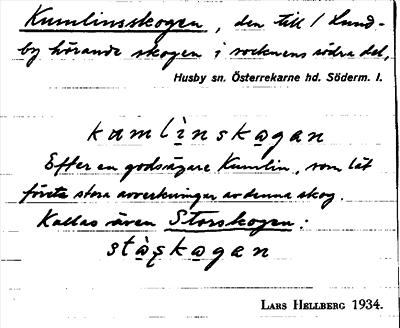 Kumlinsskogen, den till / Lund-
by hörande skogen i socknens södra del,
Husby sn. Österrekarne hd. Söderm. l.
kamlìnskạgan
Efter en godsägare Kumlin, som lät
företa stora avverkningar av denna skog.
Kallas även Storskogen:
stạ̀rskạgan
Lars Hellberg 1934.